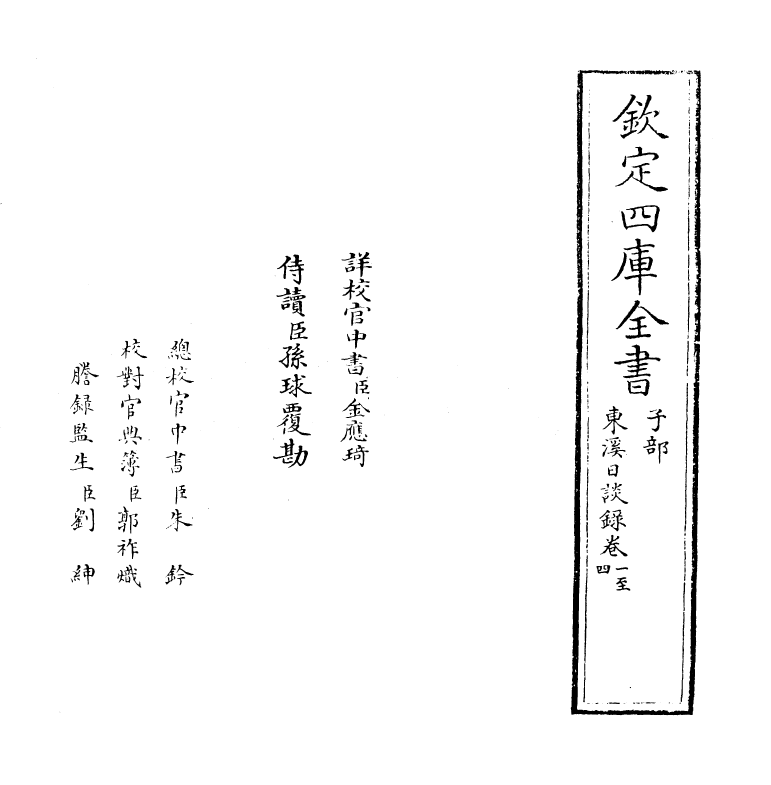 欽定四庫全書
子部
東溪日談錄卷一至四
詳校官中書臣金應琦
侍讀臣孫球覆勘
總校官中書臣朱鈐
校對官典簿臣郭祚熾
謄錄監生臣劉紳